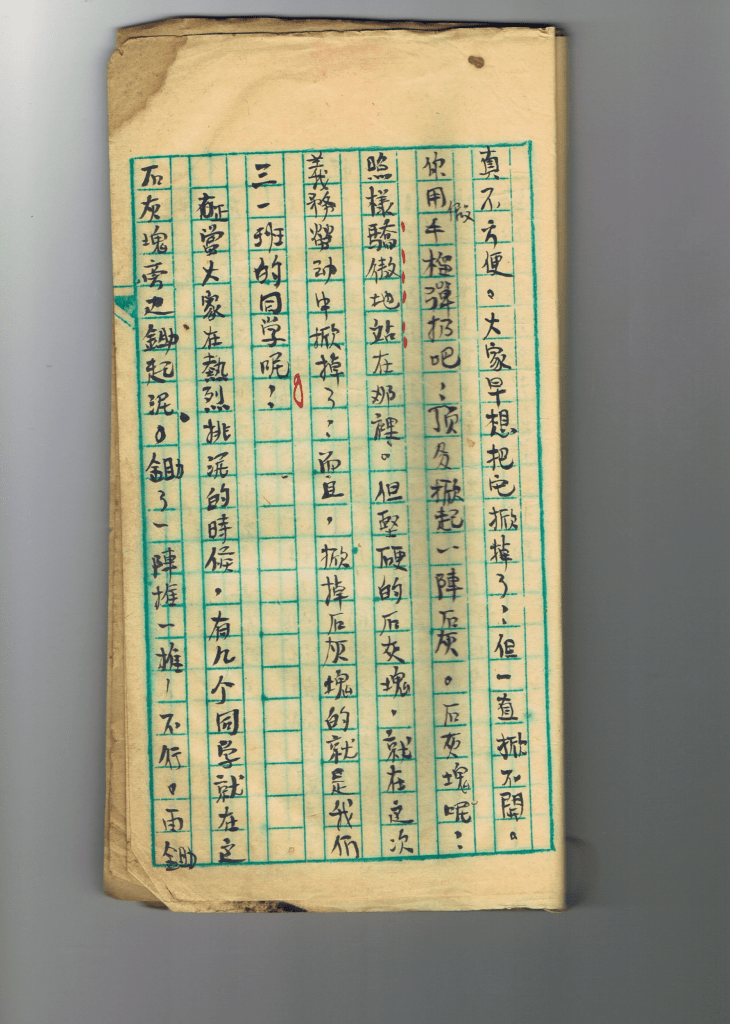 真不方便。大家早想把它掀掉了；但一直掀不開。
你用手榴彈扔吧；頂多掀起一陣石灰。石灰塊呢；
假
照樣驕傲地站在那裡。但堅硬的石灰塊，就在这次
義務勞动中掀掉了；而且，掀掉石灰塊的就是我们
三一班的同学呢；
正當大家在熱烈挑泥的時候，有几个同学就在这
石灰塊旁边鋤起泥。鋤了一陣推一推，不行。再鋤